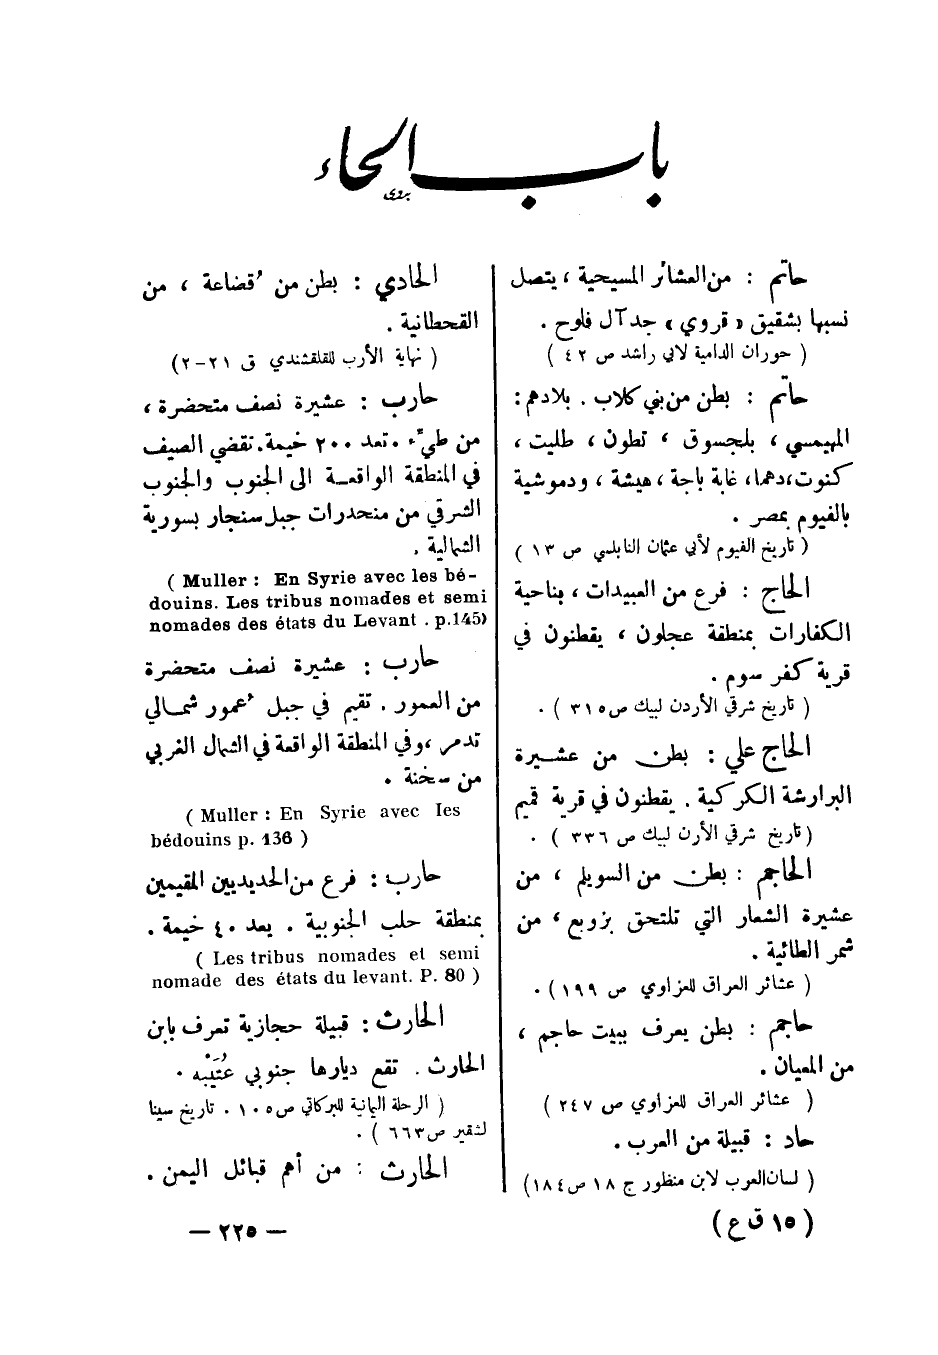 باب الحاء
بدوي
حاتم : من العشائر المسيحية ، يتصل
نسبها بشقيق « قروي » جد آل فلوح .
( حوران الدامية لابي راشد ص ٤٢ )
حاتم : بطن من بني كلاب . بلادهم :
المهيمسي ، بلجسوق ، تطون ، طليت ،
كنوت ، دهما ، غابة باجة ، هيشة ، ودموشية
بالفيوم بمصر .
( تاريخ الفيوم لأبي عثمان النابلسي ص ١٣ )
الحاج : فرع من العبيدات ، بناحية
الكفارات بمنطقة عجلون ، يقطنون في
قرية كفر سوم .
( تاريخ شرقي الأردن لبيك ص ٣١٥ ) .
الحاج علي : بطن من عشيرة
البرارشة الكركية . يقطنون في قرية قميم
( تاريخ شرقي الأرن لبيك ص ٣٣٦ ) .
الحاجم : بطن من السويلم ، من
عشيرة الشعار التي تلتحق بزوبع ، من
شمر الطائية .
( عشائر العراق للعزاوي ص ١٩٩ ) .
حاجم : بطن يعرف ببيت حاجم ،
من المعيان .
( عشائر العراق للعزاوي ص ٢٤٧ )
حاد : قبيلة من العرب .
( لسان العرب لابن منظور ج ١٨ ص ١٨٤ )
الحادي : بطن من قُضاعة ، من
القحطانية .
( نهاية الأرب للقلقشندي ق ٢١-٢ )
حارب : عشيرة نصف متحضرة ،
من طيء . تعد ٢٠٠ خيمة . تقضي الصيف
في المنطقة الواقعة الى الجنوب والجنوب
الشرقي من منحدرات جبل سنجار بسورية
الشمالية .
( Muller : En Syrie avec les bé-
douins. Les tribus nomades et semi
nomades des états du Levant . p.145)
حارب : عشيرة نصف متحضرة
من العمور . تقيم في جبل عُمور شمالي
تدمر ، وفي المنطقة الواقعة في الشمال الغربي
من سخنة .
( Muller : En Syrie avec les
bédouins p. 136 )
حارب : فرع من الحديديين المقيمين
بمنطقة حلب الجنوبية . يعد ٤٠ خيمة .
( Les tribus nomades et semi
nomade des états du levant. P. 80 )
الحارث : قبيلة حجازية تعرف بابن
الحارث . تقع ديارها جنوبي عُتَيْبه .
( الرحلة اليمانية للبركاتي ص ١٠٥ . تاريخ سينا
لشقير ص ٦٦٣ ) .
الحارث : من أهم قبائل اليمن .
( ١٥ ق ع )
— ٢٢٥ —